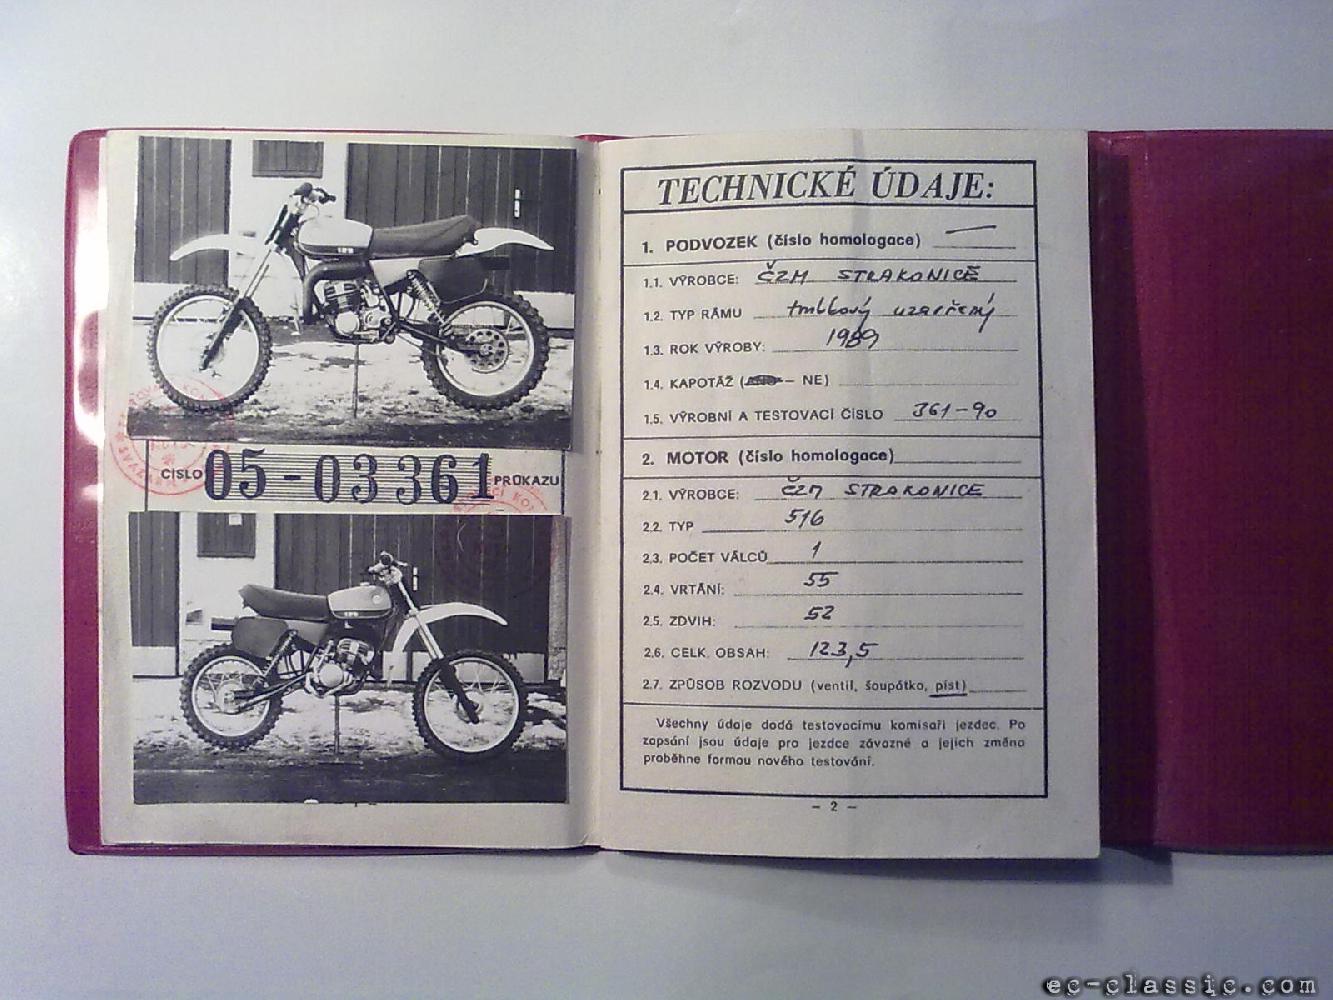 125
ČÍSLO 05-03361 PRŮKAZU
125
TECHNICKÉ ÚDAJE:
1. PODVOZEK (číslo homologace) —
1.1. VÝROBCE: ČZM STRAKONICE
1.2. TYP RÁMU trubkový uzavřený
1.3. ROK VÝROBY: 1989
1.4. KAPOTÁŽ (ANO – NE)
1.5. VÝROBNÍ A TESTOVACÍ ČÍSLO 361-90
2. MOTOR (číslo homologace)
2.1. VÝROBCE: ČZM STRAKONICE
2.2. TYP 516
2.3. POČET VÁLCŮ 1
2.4. VRTÁNÍ: 55
2.5. ZDVIH: 52
2.6. CELK. OBSAH: 123,5
2.7. ZPŮSOB ROZVODU (ventil, šoupátko, píst)
Všechny údaje dodá testovacímu komisaři jezdec. Po
zapsání jsou údaje pro jezdce závazné a jejich změna
proběhne formou nového testování.
– 2 –
ec-classic.com